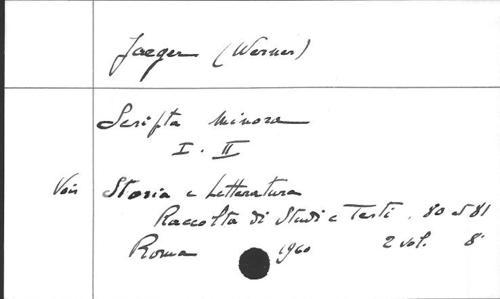 Jaeger (Werner)
Scripta Minora
I. II
Voir Storia e Letteratura
Raccolta di Studi e Testi. 80 et 81
Roma 1960 2 vol. 8°